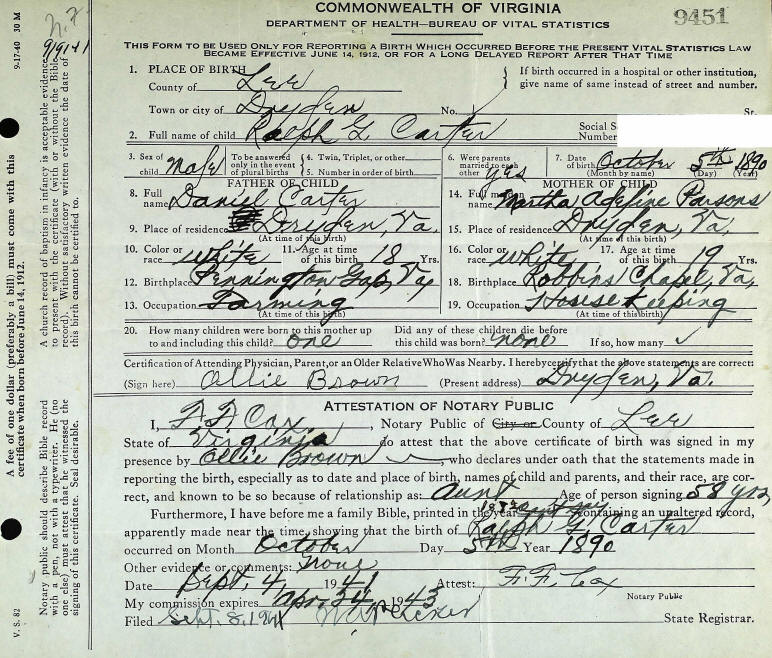 COMMONWEALTH OF VIRGINIA
9451
DEPARTMENT OF HEALTH—BUREAU OF VITAL STATISTICS
THIS FORM TO BE USED ONLY FOR REPORTING A BIRTH WHICH OCCURRED BEFORE THE PRESENT VITAL STATISTICS LAW
BECAME EFFECTIVE JUNE 14, 1912, OR FOR A LONG DELAYED REPORT AFTER THAT TIME
1. PLACE OF BIRTH
County of Lee
If birth occurred in a hospital or other institution, give name of same instead of street and number.
Town or city of Dryden No. Sr.
2. Full name of child Ralph G. Carter Social S
Number
3. Sex of child Male To be answered only in the event of plural births 4. Twin, Triplet, or other 5. Number in order of birth 6. Were parents married to each other yes 7. Date of birth October 5th 1890
(Month by name) (Day) (Year)
FATHER OF CHILD MOTHER OF CHILD
8. Full name Daniel Carter 14. Full name Martha Adeline Parsons
9. Place of residence Dryden, Va. 15. Place of residence Dryden, Va.
(At time of this birth) (At time of this birth)
10. Color or race white 11. Age at time of this birth 18 Yrs. 16. Color or race white 17. Age at time of this birth 19 Yrs.
12. Birthplace Pennington Gap, Va, 18. Birthplace Robbins Chapel, Va,
13. Occupation Farming 19. Occupation House Keeping
(At time of this birth) (At time of this birth)
20. How many children were born to this mother up to and including this child? one Did any of these children die before this child was born? none If so, how many ✓
Certification of Attending Physician, Parent, or an Older Relative Who Was Nearby. I hereby certify that the above statements are correct:
(Sign here) Ollie Brown (Present address) Dryden, Va.
ATTESTATION OF NOTARY PUBLIC
I, F. F. Cox, Notary Public of City or County of Lee
State of Virginia do attest that the above certificate of birth was signed in my
presence by Ollie Brown, who declares under oath that the statements made in
reporting the birth, especially as to date and place of birth, names of child and parents, and their race, are cor-
rect, and known to be so because of relationship as: aunt Age of person signing 58 yrs,
Furthermore, I have before me a family Bible, printed in the year containing an unaltered record,
apparently made near the time, showing that the birth of Ralph G. Carter
occurred on Month October Day 5th Year 1890
Other evidence or comments: None
Date Sept 4, 1941 Attest: F. F. Cox
My commission expires Apr. 24, 1943 Notary Public
Filed Sept. 8, 1941 State Registrar.
9-17-40 30 M
9/9/41
A church record of baptism in infancy is acceptable evidence
to present with the certificate (with or without the Bible
record). Without satisfactory written evidence the date of
this birth cannot be certified to.
A fee of one dollar (preferably a bill) must come with this
certificate when born before June 14, 1912.
Notary public should describe Bible record
with a pen, not with a typewriter. He (no
one else) must attest that he witnessed the
signing of this certificate. Seal desirable.
V. S. 82